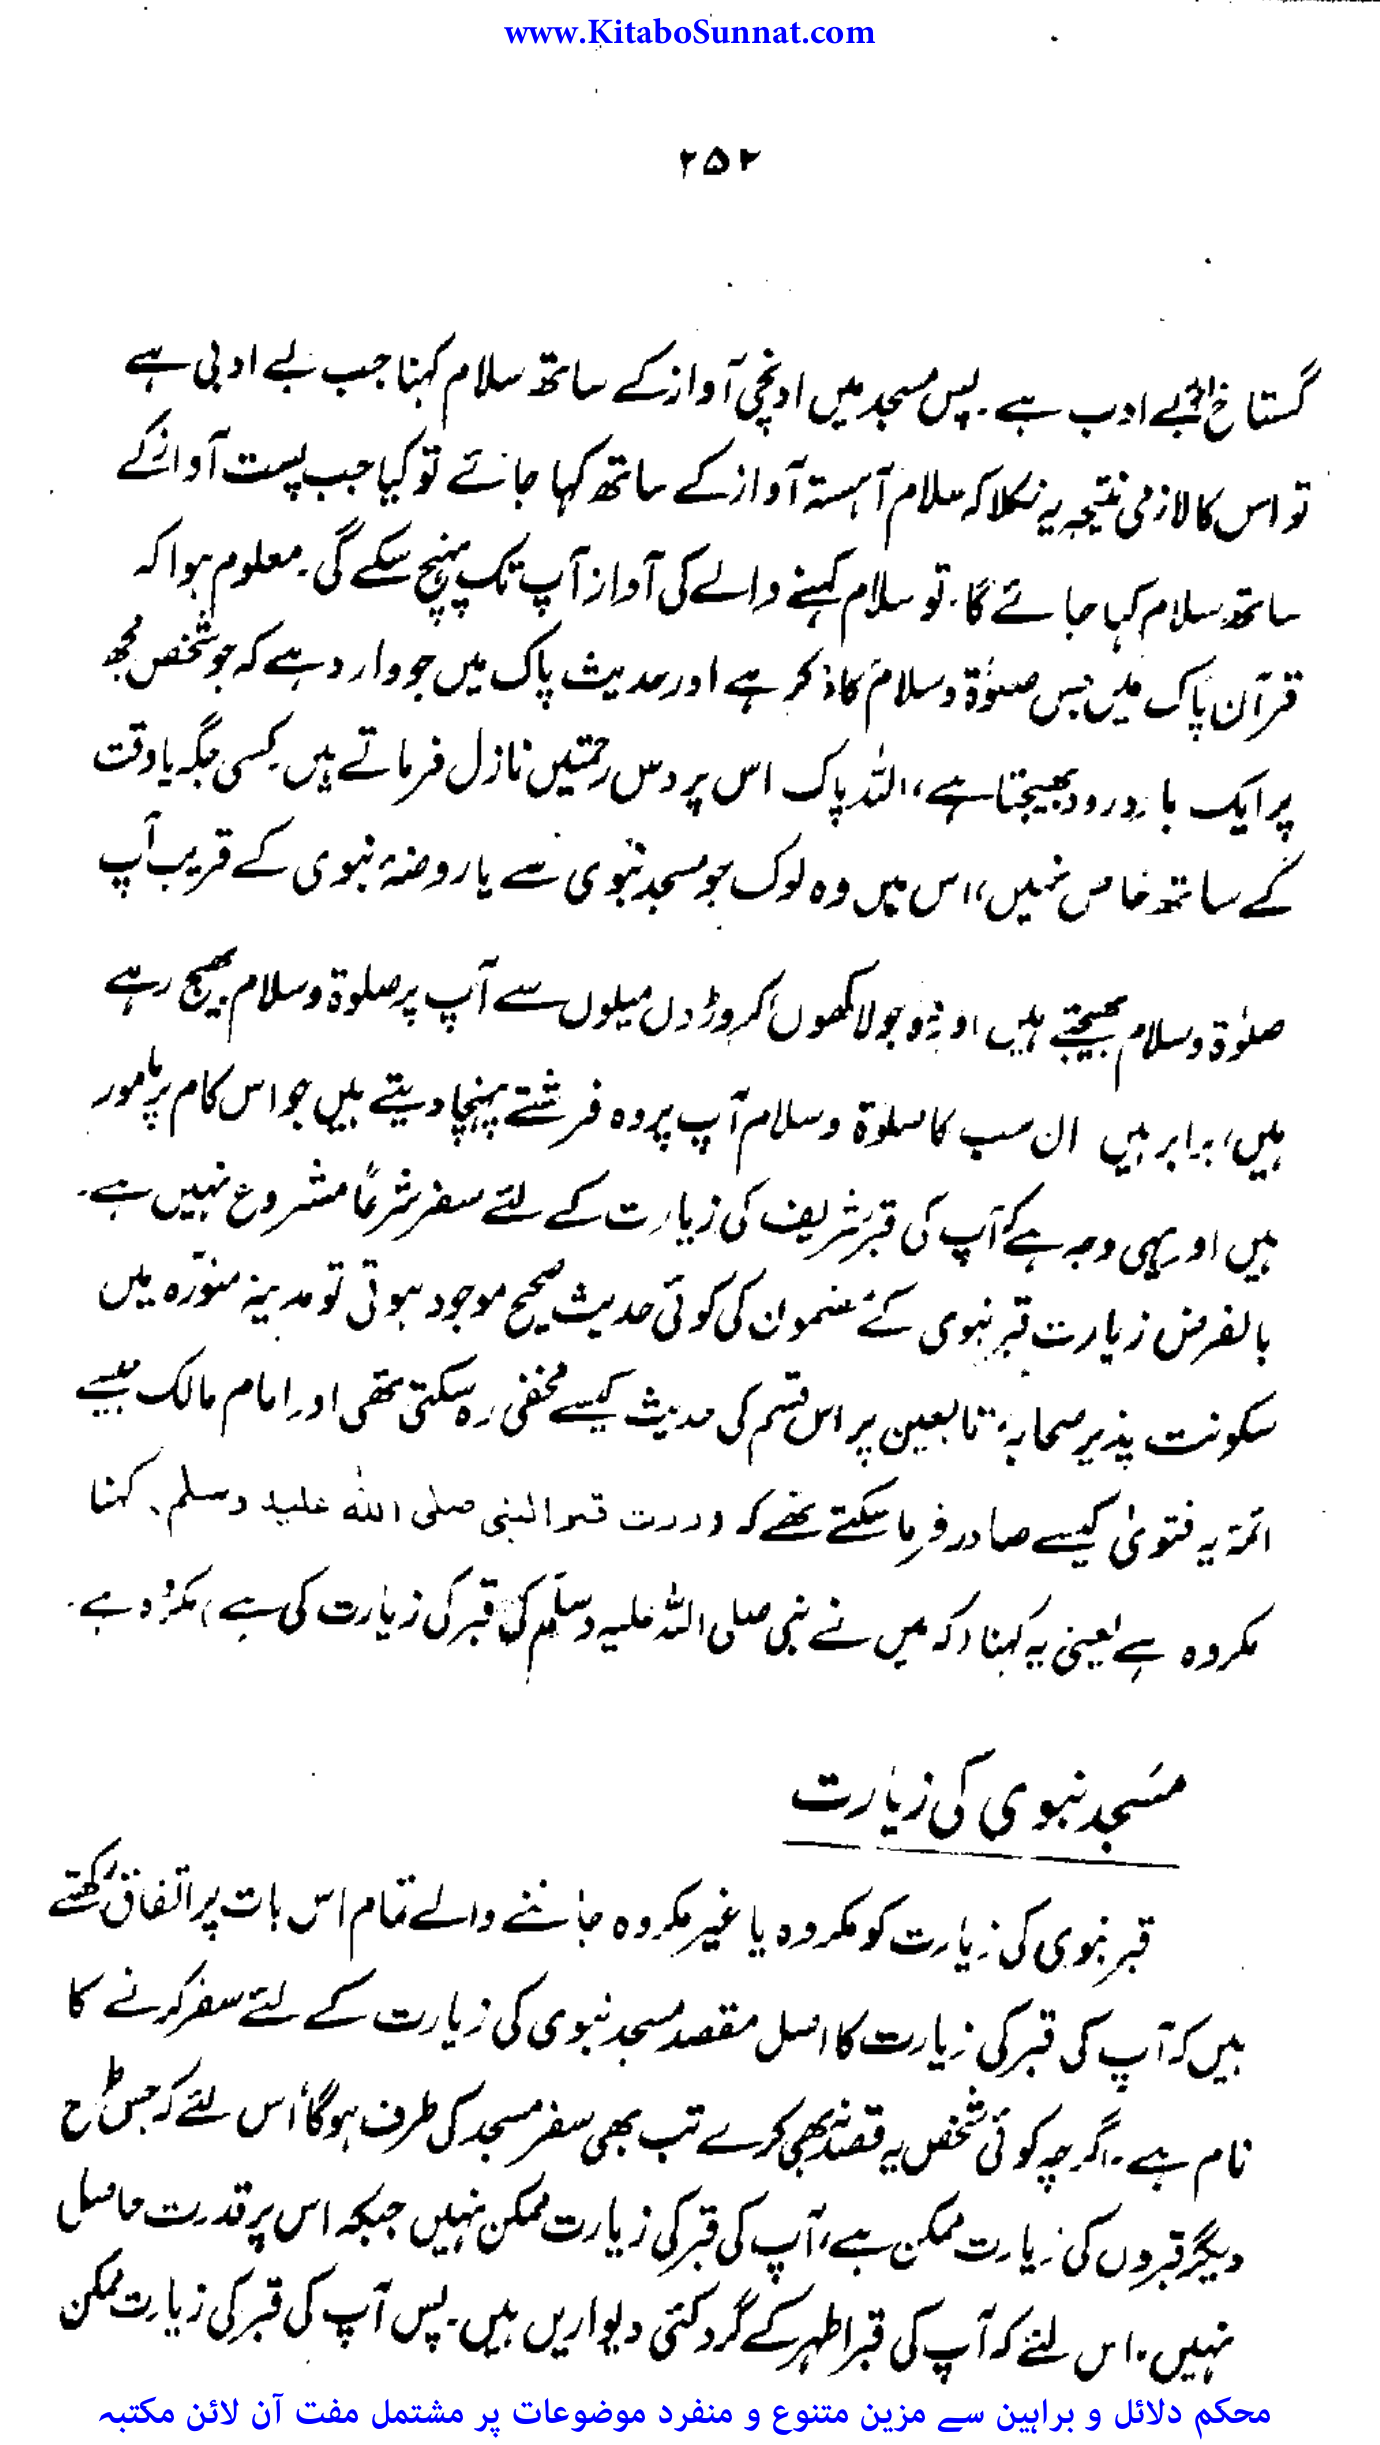 www.KitaboSunnat.com
۲۵۲
گستاخ اور بے ادب ہے۔ پس مسجد میں اونچی آواز کے ساتھ سلام کہنا جب بے ادبی ہے
تو اس کا لازمی نتیجہ یہ نکلا کہ سلام آہستہ آواز کے ساتھ کہا جائے تو کیا جب پست آواز کے
ساتھ سلام کہا جائے گا۔ تو سلام کہنے والے کی آواز آپ تک پہنچ سکے گی۔ معلوم ہوا کہ
قرآن پاک میں جس صلوٰۃ و سلام کا ذکر ہے اور حدیث پاک میں جو وارد ہے کہ جو شخص مجھ
پر ایک بار درود بھیجتا ہے، اللہ پاک اس پر دس رحمتیں نازل فرماتے ہیں۔ کسی جگہ یا وقت
کے ساتھ خاص نہیں، اس میں وہ لوگ جو مسجد نبوی سے یا روضۂ نبوی کے قریب آپ
صلوٰۃ و سلام بھیجتے ہیں اور وہ جو لاکھوں کروڑوں میلوں سے آپ پر صلوۃ و سلام بھیج رہے
ہیں، برابر ہیں ان سب کا صلوۃ و سلام آپ پر وہ فرشتے پہنچا دیتے ہیں جو اس کام پر مامور
ہیں اور یہی وجہ ہے کہ آپ کی قبر شریف کی زیارت کے لئے سفر شرعاً مشروع نہیں ہے۔
بالفرض زیارت قبر نبوی کے مضمون کی کوئی حدیث صحیح موجود ہوتی تو مدینہ منورّہ میں
سکونت پذیر صحابہ، تابعین پر اس قسم کی حدیث کیسے مخفی رہ سکتی تھی اور امام مالک جیسے
ائمۃ یہ فتویٰ کیسے صادر فرما سکتے تھے کہ وزرت قبر النبی صلی اللہ علیہ وسلم، کہنا
مکروہ ہے یعنی یہ کہنا (کہ میں نے نبی صلی اللہ علیہ وسلم کی قبر کی زیارت کی ہے) مکروہ ہے۔
مسجد نبوی کی زیارت
قبر نبوی کی زیارت کو مکروہ یا غیر مکروہ جاننے والے تمام اس بات پر اتفاق رکھتے
ہیں کہ آپ کی قبر کی زیارت کا اصل مقصد مسجد نبوی کی زیارت کے لئے سفر کرنے کا
نام ہے۔ اگرچہ کوئی شخص یہ قصد نہ بھی کرے تب بھی سفر مسجد کی طرف ہوگا اس لئے کہ جس طرح
دیگر قبروں کی زیارت ممکن ہے، آپ کی قبر کی زیارت ممکن نہیں جبکہ اس پر قدرت حاصل
نہیں۔ اس لئے کہ آپ کی قبر اطہر کے گرد کئی دیواریں ہیں۔ پس آپ کی قبر کی زیارت ممکن
محکم دلائل و براہین سے مزین متنوع و منفرد موضوعات پر مشتمل مفت آن لائن مکتبہ